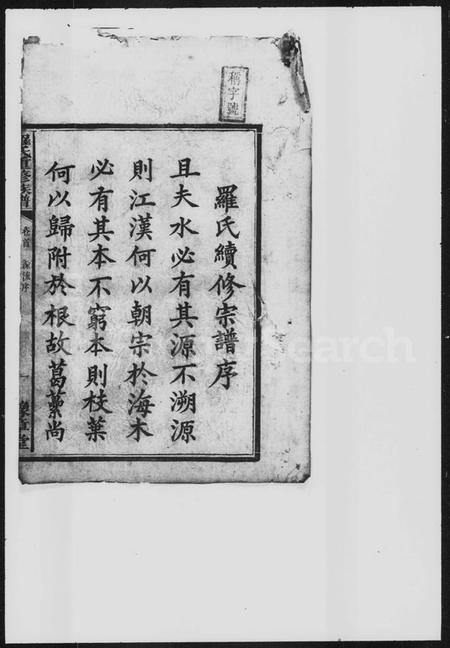 稱字號
羅氏續修宗譜序
且夫水必有其源不溯源
則江漢何以朝宗於海木
必有其本不窮本則枝葉
何以歸附於根故葛藟尚
羅氏重修族譜
卷首